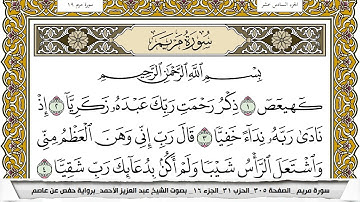 الجزء السادس عشر
سورة مريم ١٩
سُورَةُ مَرْيَمَ
بِسْمِ اللَّهِ الرَّحْمَٰنِ الرَّحِيمِ
كٓهيعٓصٓ ١ ذِكْرُ رَحْمَتِ رَبِّكَ عَبْدَهُۥ زَكَرِيَّآ ٢ إِذْ
نَادَىٰ رَبَّهُۥ نِدَآءً خَفِيًّا ٣ قَالَ رَبِّ إِنِّي وَهَنَ ٱلْعَظْمُ مِنِّي
وَٱشْتَعَلَ ٱلرَّأْسُ شَيْبًا وَلَمْ أَكُنۢ بِدُعَآئِكَ رَبِّ شَقِيًّا ٤
سورة مريم _ الصفحة ٣٠٥ _ الحزب ٣١ _ الجزء ١٦ _ بصوت الشيخ عبد العزيز الأحمد _ برواية حفص عن عاصم